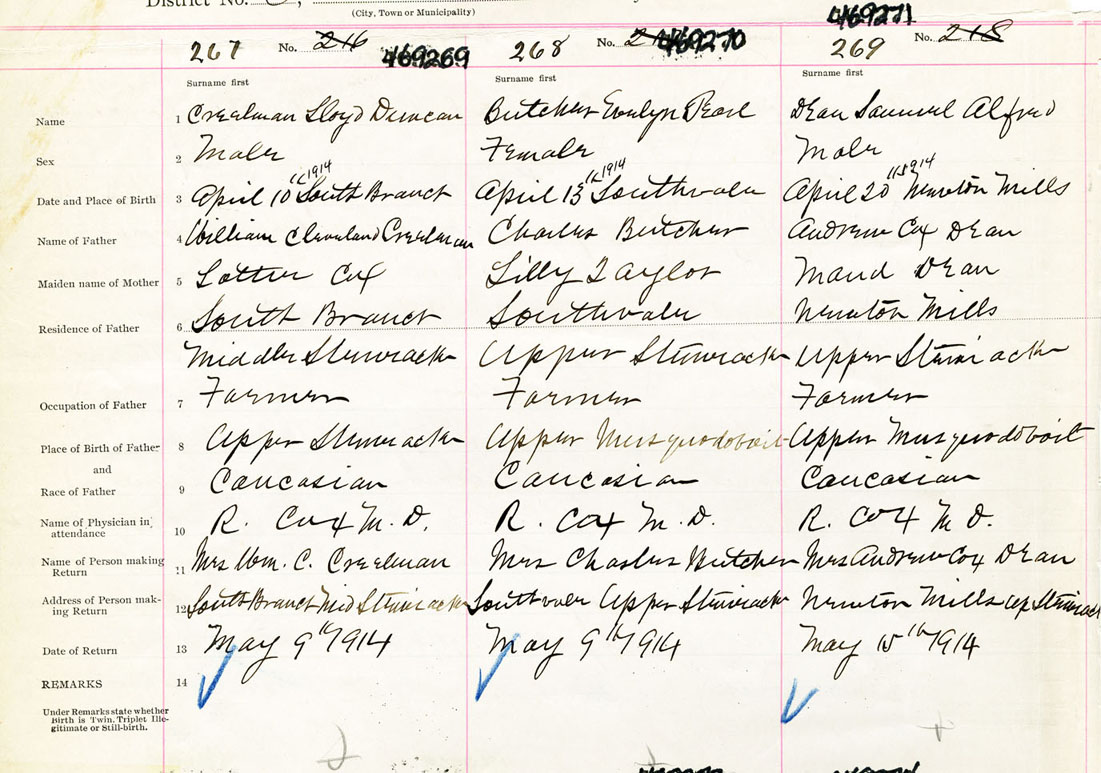 District No.
(City, Town or Municipality)
267 No. 216 469269
268 No. 469270
469271
269 No. 218
Surname first Surname first Surname first
Name 1 Creelman Lloyd Duncan Butcher Evelyn Pearl Dean Samuel Alfred
Sex 2 Male Female Male
Date and Place of Birth 3 April 10th 1914 South Branch April 13th 1914 Southvale April 20 1914 Newton Mills
Name of Father 4 William Cleveland Creelman Charles Butcher Andrew Cox Dean
Maiden name of Mother 5 Lottie Cox Lilly Taylor Maud Dean
Residence of Father 6 South Branch Southvale Newton Mills
Middle Stewiacke Upper Stewiacke Upper Stewiacke
Occupation of Father 7 Farmer Farmer Farmer
Place of Birth of Father 8 Upper Stewiacke Upper Musquodoboit Upper Musquodoboit
and
Race of Father 9 Caucasian Caucasian Caucasian
Name of Physician in attendance 10 R. Cox M.D. R. Cox M.D. R. Cox M D.
Name of Person making Return 11 Mrs Wm. C. Creelman Mrs Charles Butcher Mrs Andrew Cox Dean
Address of Person making Return 12 South Branch Mid Stewiacke Southvale Upper Stewiacke Newton Mills up Stewiack
Date of Return 13 May 9th 1914 May 9th 1914 May 15th 1914
REMARKS 14
Under Remarks state whether
Birth is Twin, Triplet Ille-
gitimate or Still-birth.